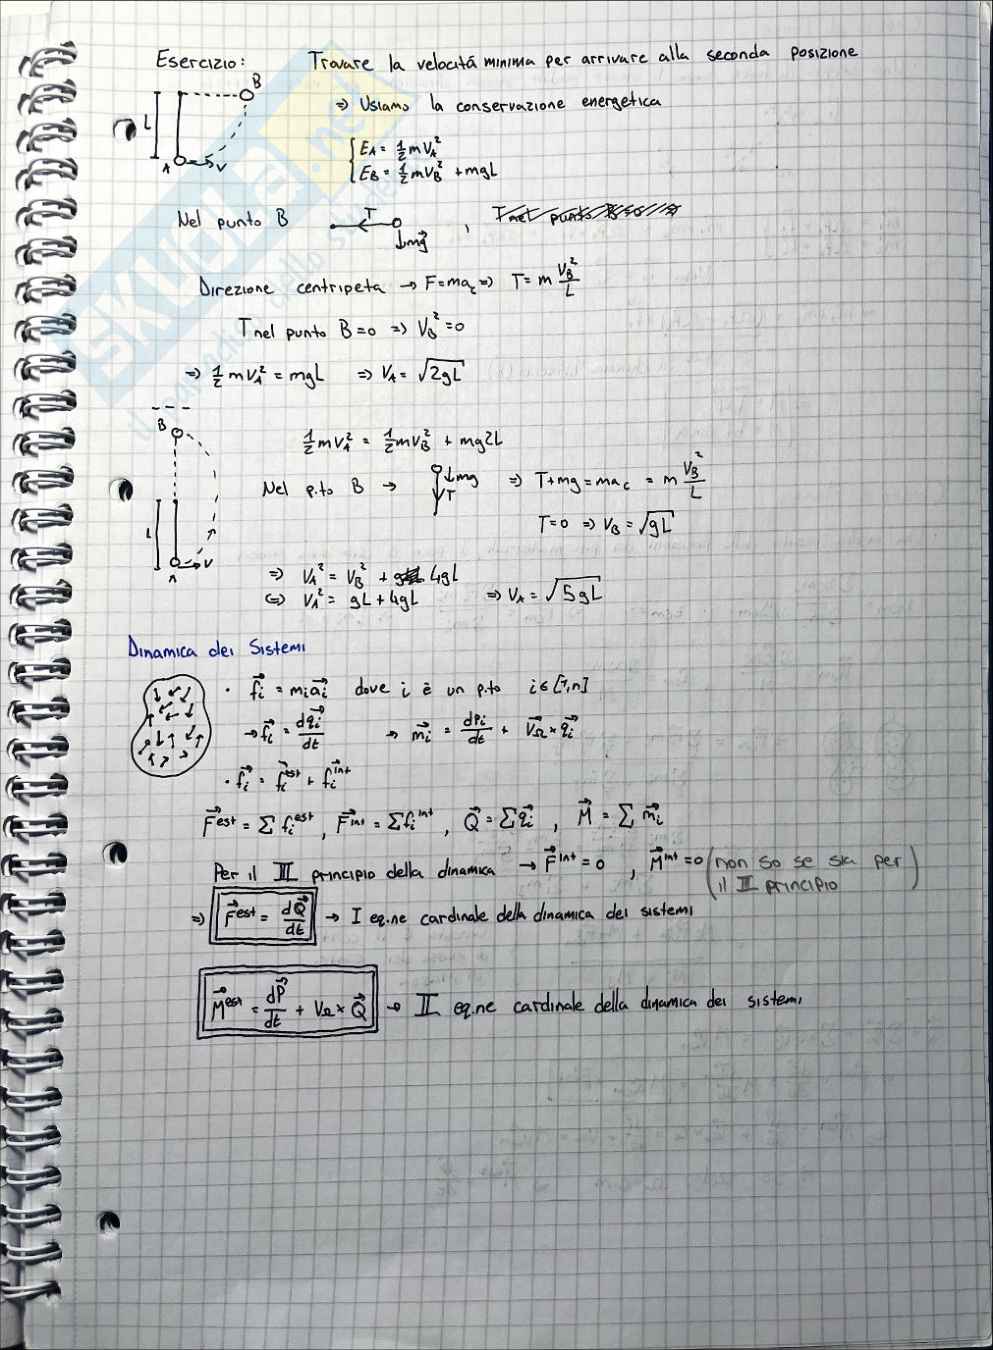 Esercizio: Trovare la velocitá minima per arrivare alla seconda posizione
B
L
A
V
=> Usiamo la conservazione energetica
{ E_A = 1/2 m V_A^2
E_B = 1/2 m V_B^2 + mgL
Nel punto B T mg ,
Direzione centripeta → F = ma_c => T = m V_B^2/L
T nel punto B = 0 => V_B^2 = 0
=> 1/2 m V_A^2 = mgL => V_A = √2gL
B
L
A
V
1/2 m V_A^2 = 1/2 m V_B^2 + mg2L
Nel p.to B → mg T => T + mg = ma_c = m V_B^2/L
T = 0 => V_B = √gL
=> V_A^2 = V_B^2 + 4gL
<=> V_A^2 = gL + 4gL => V_A = √5gL
Dinamica dei Sistemi
· f_i = m_i a_i dove i è un p.to i ∈ [1,n]
→ f_i = dq_i/dt → m_i = dp_i/dt + V_Ω × q_i
· f_i = f_i^est + f_i^int
F^est = Σ f_i^est , F^int = Σ f_i^int , Q = Σ q_i , M = Σ m_i
Per il III principio della dinamica → F^int = 0 , M^int = 0 (non so se sia per il III principio)
=> F^est = dQ/dt → I eq.ne cardinale della dinamica dei sistemi
M^est = dP/dt + V_Ω × Q → II eq.ne cardinale della dinamica dei sistemi
SKUOLA.net